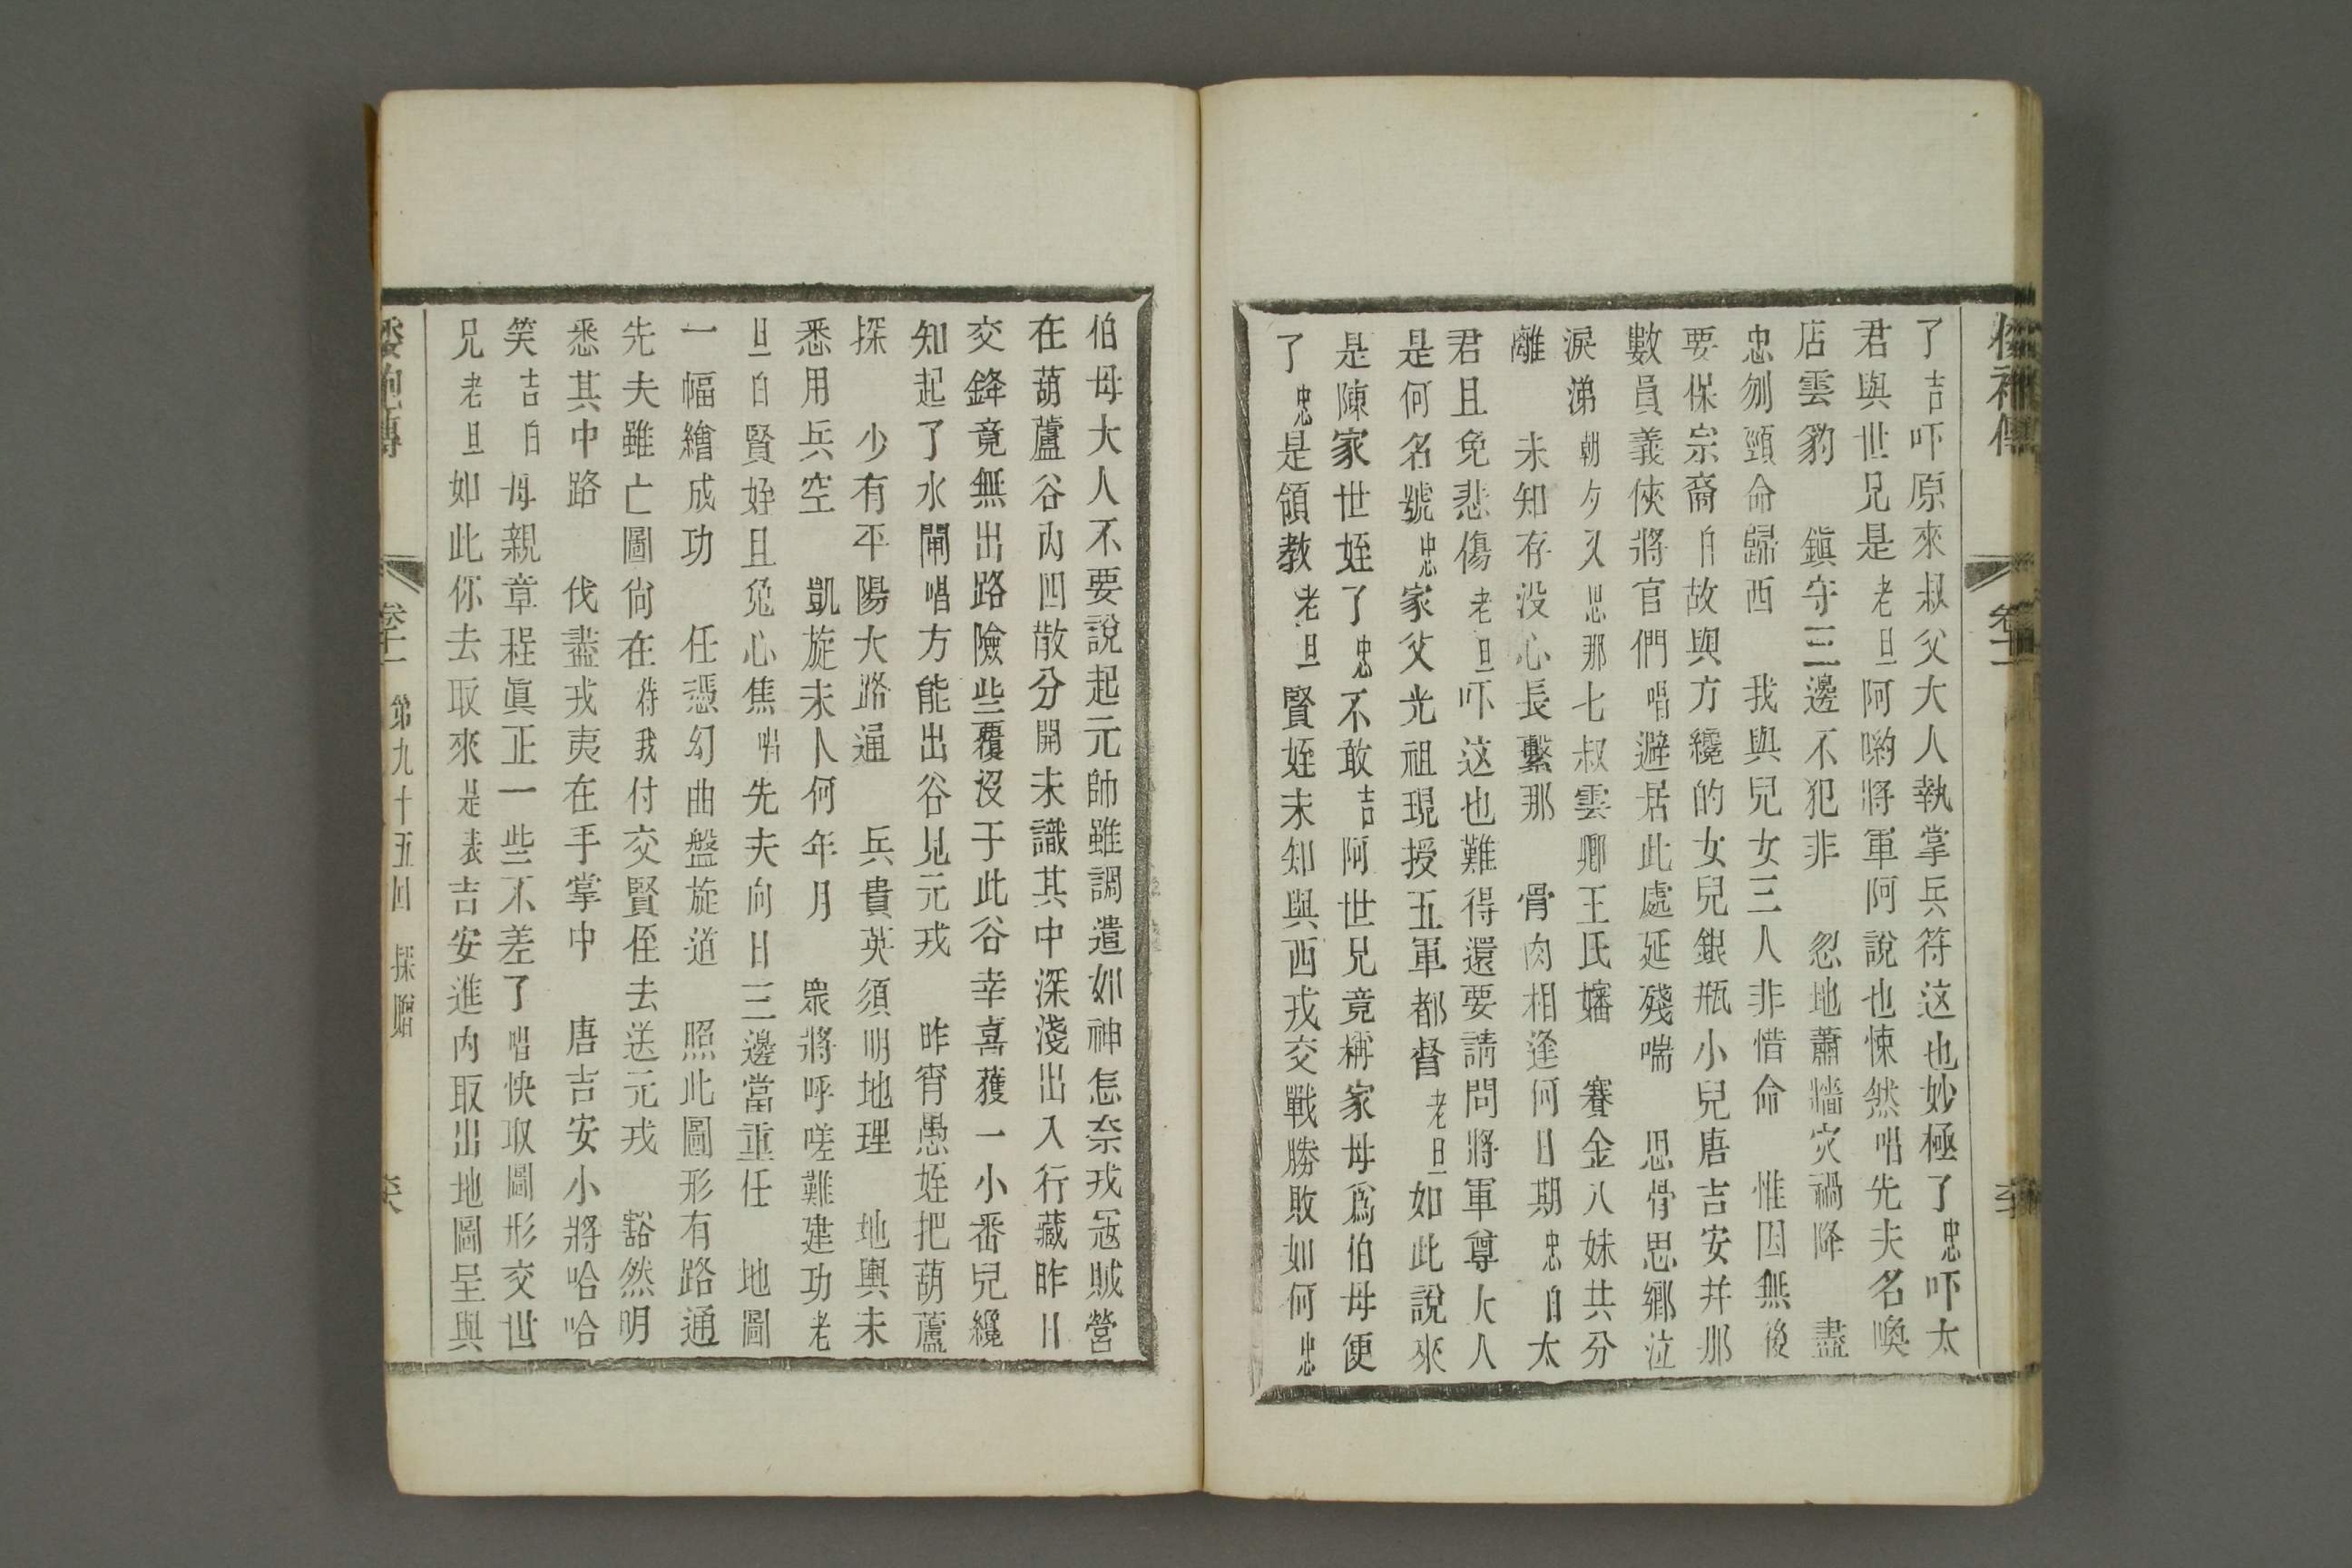 了吉吓原來叔父大人執掌兵符这也妙極了忠吓太
君與世兄是老旦阿喲將軍阿說也悚然唱先夫名喚
店雲豹 鎭守三邊不犯非 忽地蕭牆灾禍降 盡
忠刎頸命歸西 我與兒女三人非惜命 惟因無後
要保宗裔白故與方纔的女兒銀瓶小兒唐吉安并那
數員義俠將官們唱避居此處延殘喘 思骨思鄉泣
淚涕朝夕又思那七叔雲卿王氏嬸 賽金八妹共分
離 未知存没心長繫那 骨肉相逢何日期忠白太
君且免悲傷老旦吓这也難得還要請問將軍尊大人
是何名號忠家父光祖現授五軍都督老旦如此說來
是陳家世姪了忠不敢吉阿世兄竟稱家母爲伯母便
了忠是領教老旦賢姪未知與西戎交戰勝敗如何忠
伯母大人不要說起元帥雖調遣如神怎奈戎冦賊營
在葫蘆谷內四散分開未識其中深淺出入行藏昨日
交鋒竟無出路險些覆没于此谷幸喜獲一小番兒纔
知起了水閘唱方能出谷見元戎 昨宵愚姪把葫蘆
探 少有平陽大路通 兵貴英須明地理 地輿未
悉用兵空 凱旋未卜何年月 眾將呼嗟難建功老
旦白賢姪且免心焦唱先夫向日三邊當重任 地圖
一幅繪成功 任憑幻曲盤旋道 照此圖形有路通
先夫雖亡圖尙在待我付交賢侄去送元戎 豁然明
悉其中路 伐盡戎夷在手掌中 唐吉安小將哈哈
笑吉白母親章程眞正一些不差了唱快取圖形交世
兄老旦如此你去取來是表吉安進內取出地圖呈與
卷十一 第九十五回 探贈